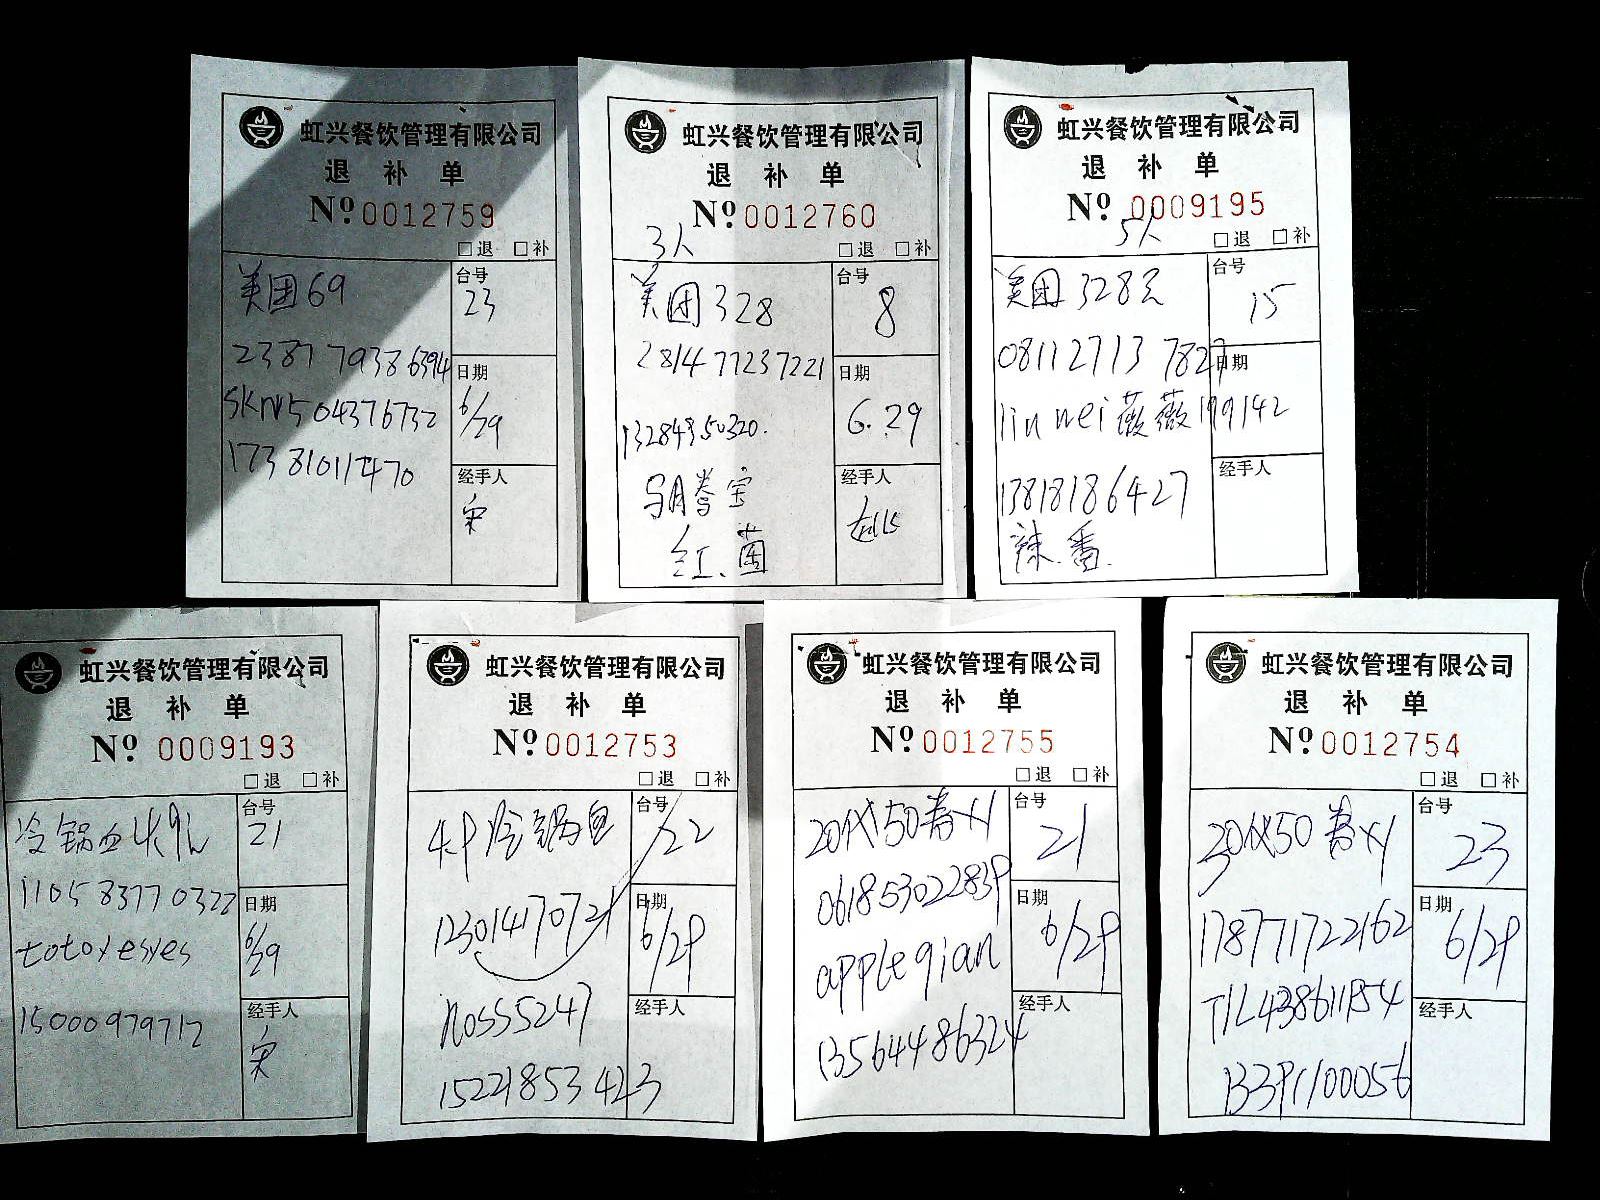 虹兴餐饮管理有限公司
退 补 单
Nº 0012759
□退 □补
美团69
台号
23
2387 7938 6394
日期
6/29
SKN504376732
17381011470
经手人
宋
虹兴餐饮管理有限公司
退 补 单
Nº 0012760
3人
□退 □补
美团328
台号
8
2814 77237221
日期
6.29
13284950320.
经手人
红.菌
虹兴餐饮管理有限公司
退 补 单
Nº 0009195
5人
□退 □补
美团328元
台号
15
0811 2713 7827
日期
linwei薇薇199142
经手人
13818186427
辣.番.
虹兴餐饮管理有限公司
退 补 单
Nº 0009193
□退 □补
冷锅
台号
21
1105 83770322
日期
6/29
totoyesyes
经手人
宋
15000979712
虹兴餐饮管理有限公司
退 补 单
Nº 0012753
□退 □补
冷锅鱼
台号
22
123014170721
日期
6/29
noss5247
经手人
15221853423
虹兴餐饮管理有限公司
退 补 单
Nº 0012755
□退 □补
20代50券x1
台号
21
061853022839
日期
6/29
appleqian
经手人
13564486324
虹兴餐饮管理有限公司
退 补 单
Nº 0012754
□退 □补
30代50券x1
台号
23
178771722162
日期
6/29
TIL438611954
经手人
13391100056